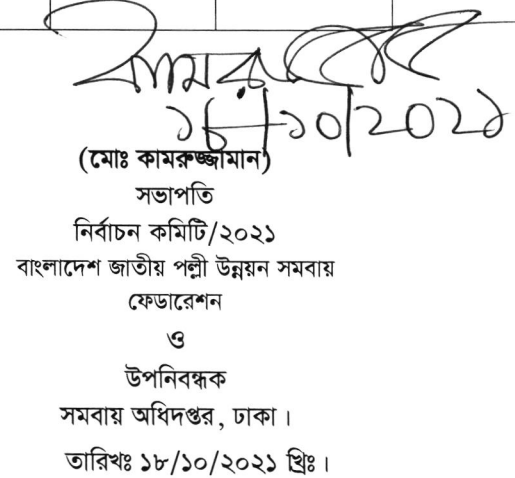 ১৮/১০/২০২১
(মোঃ কামরুজ্জামান)
সভাপতি
নির্বাচন কমিটি/২০২১
বাংলাদেশ জাতীয় পল্লী উন্নয়ন সমবায়
ফেডারেশন
ও
উপনিবন্ধক
সমবায় অধিদপ্তর, ঢাকা।
তারিখঃ ১৮/১০/২০২১ খ্রিঃ।